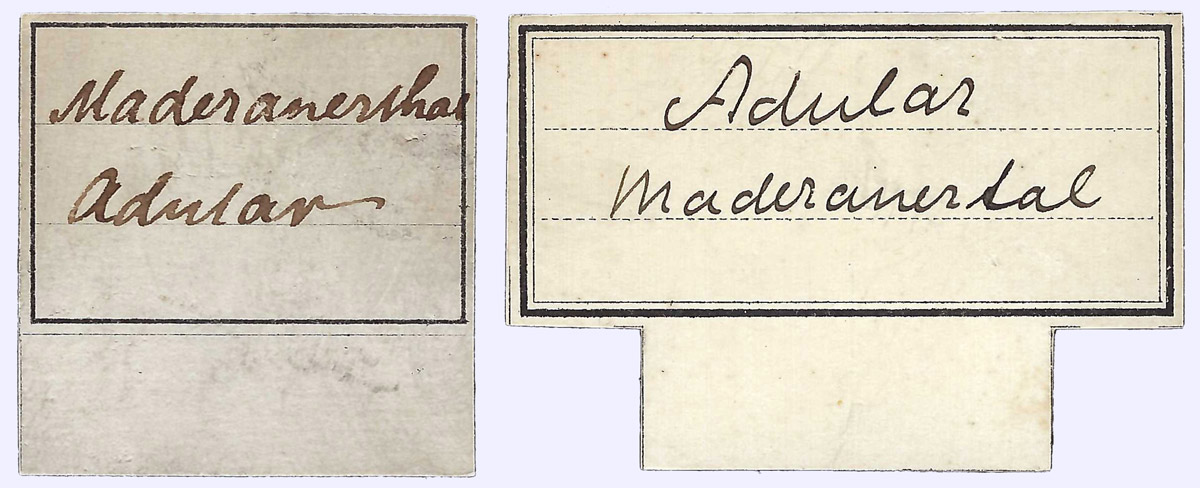 Maderanerthal
Adular
Adular
Maderanertal